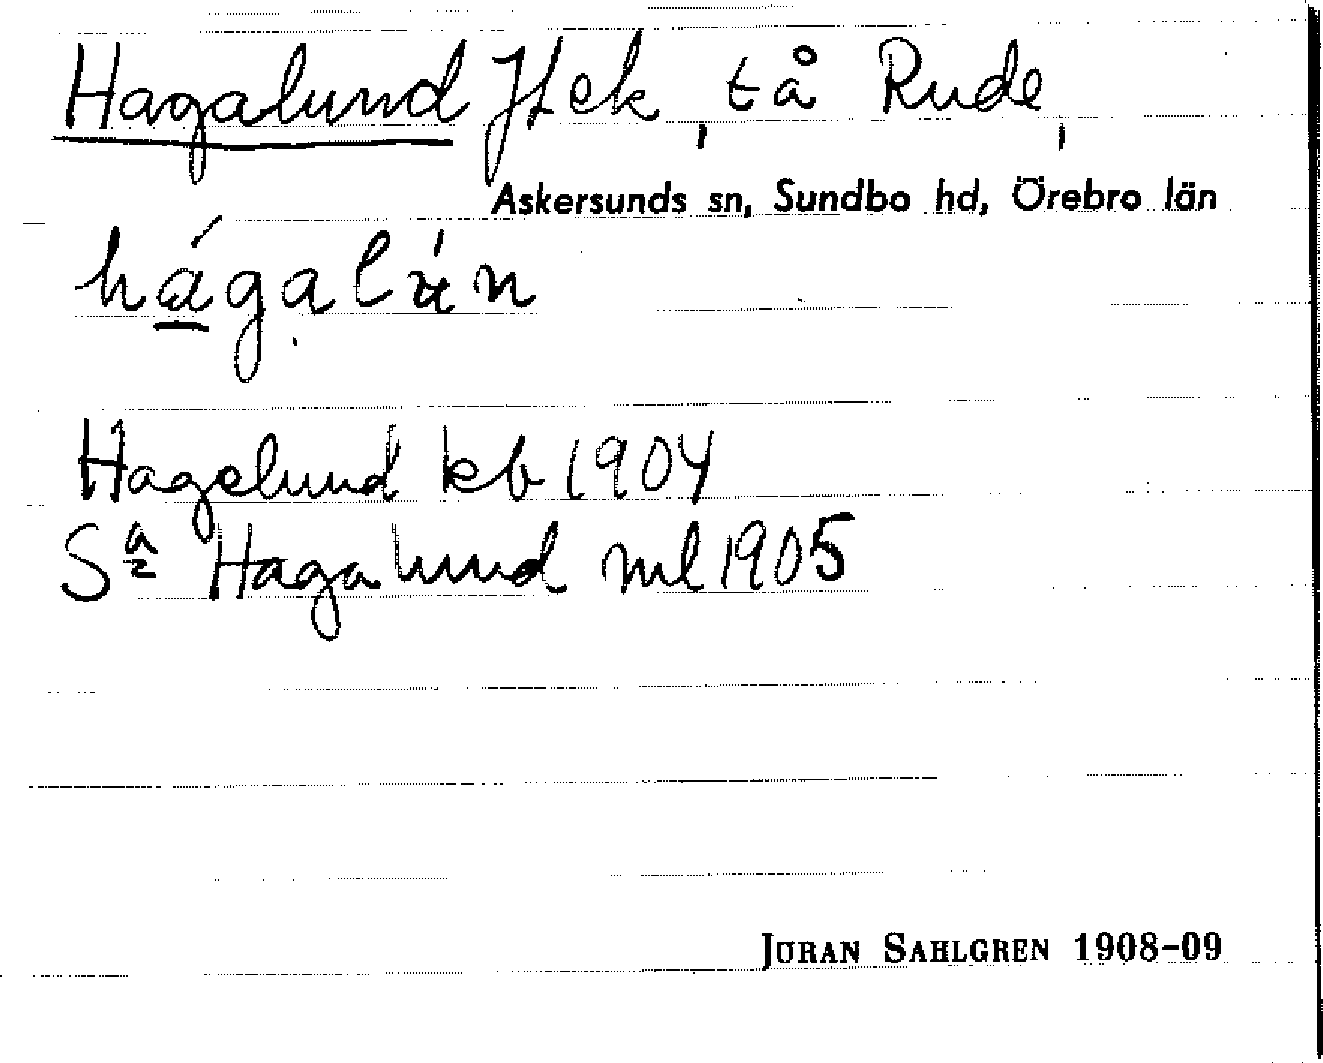 Hagalund Jlek, tå Rude,
Askersunds sn, Sundbo hd, Örebro län
hágalún
Hagelund kb 1904
Sa Hagalund ml 1905
JÖRAN SAHLGREN 1908-09